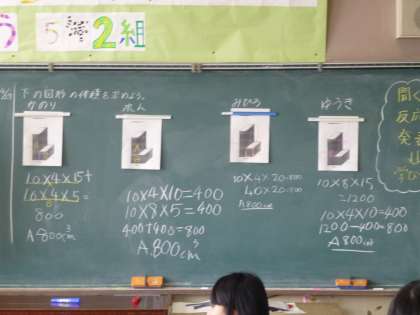 5年2組
下の図形の体積を求めよう。
かのり
10×4×15+
10×4×5=
800
A 800cm³
れん
10×4×10=400
10×8×5=400
400+400=800
A 800cm³
みひろ
10×4×20=800
A 800cm³
ゆうき
10×8×15
=1200
10×4×10=400
1200-400=800
A 800cm³
聞く
反応
発言
学び